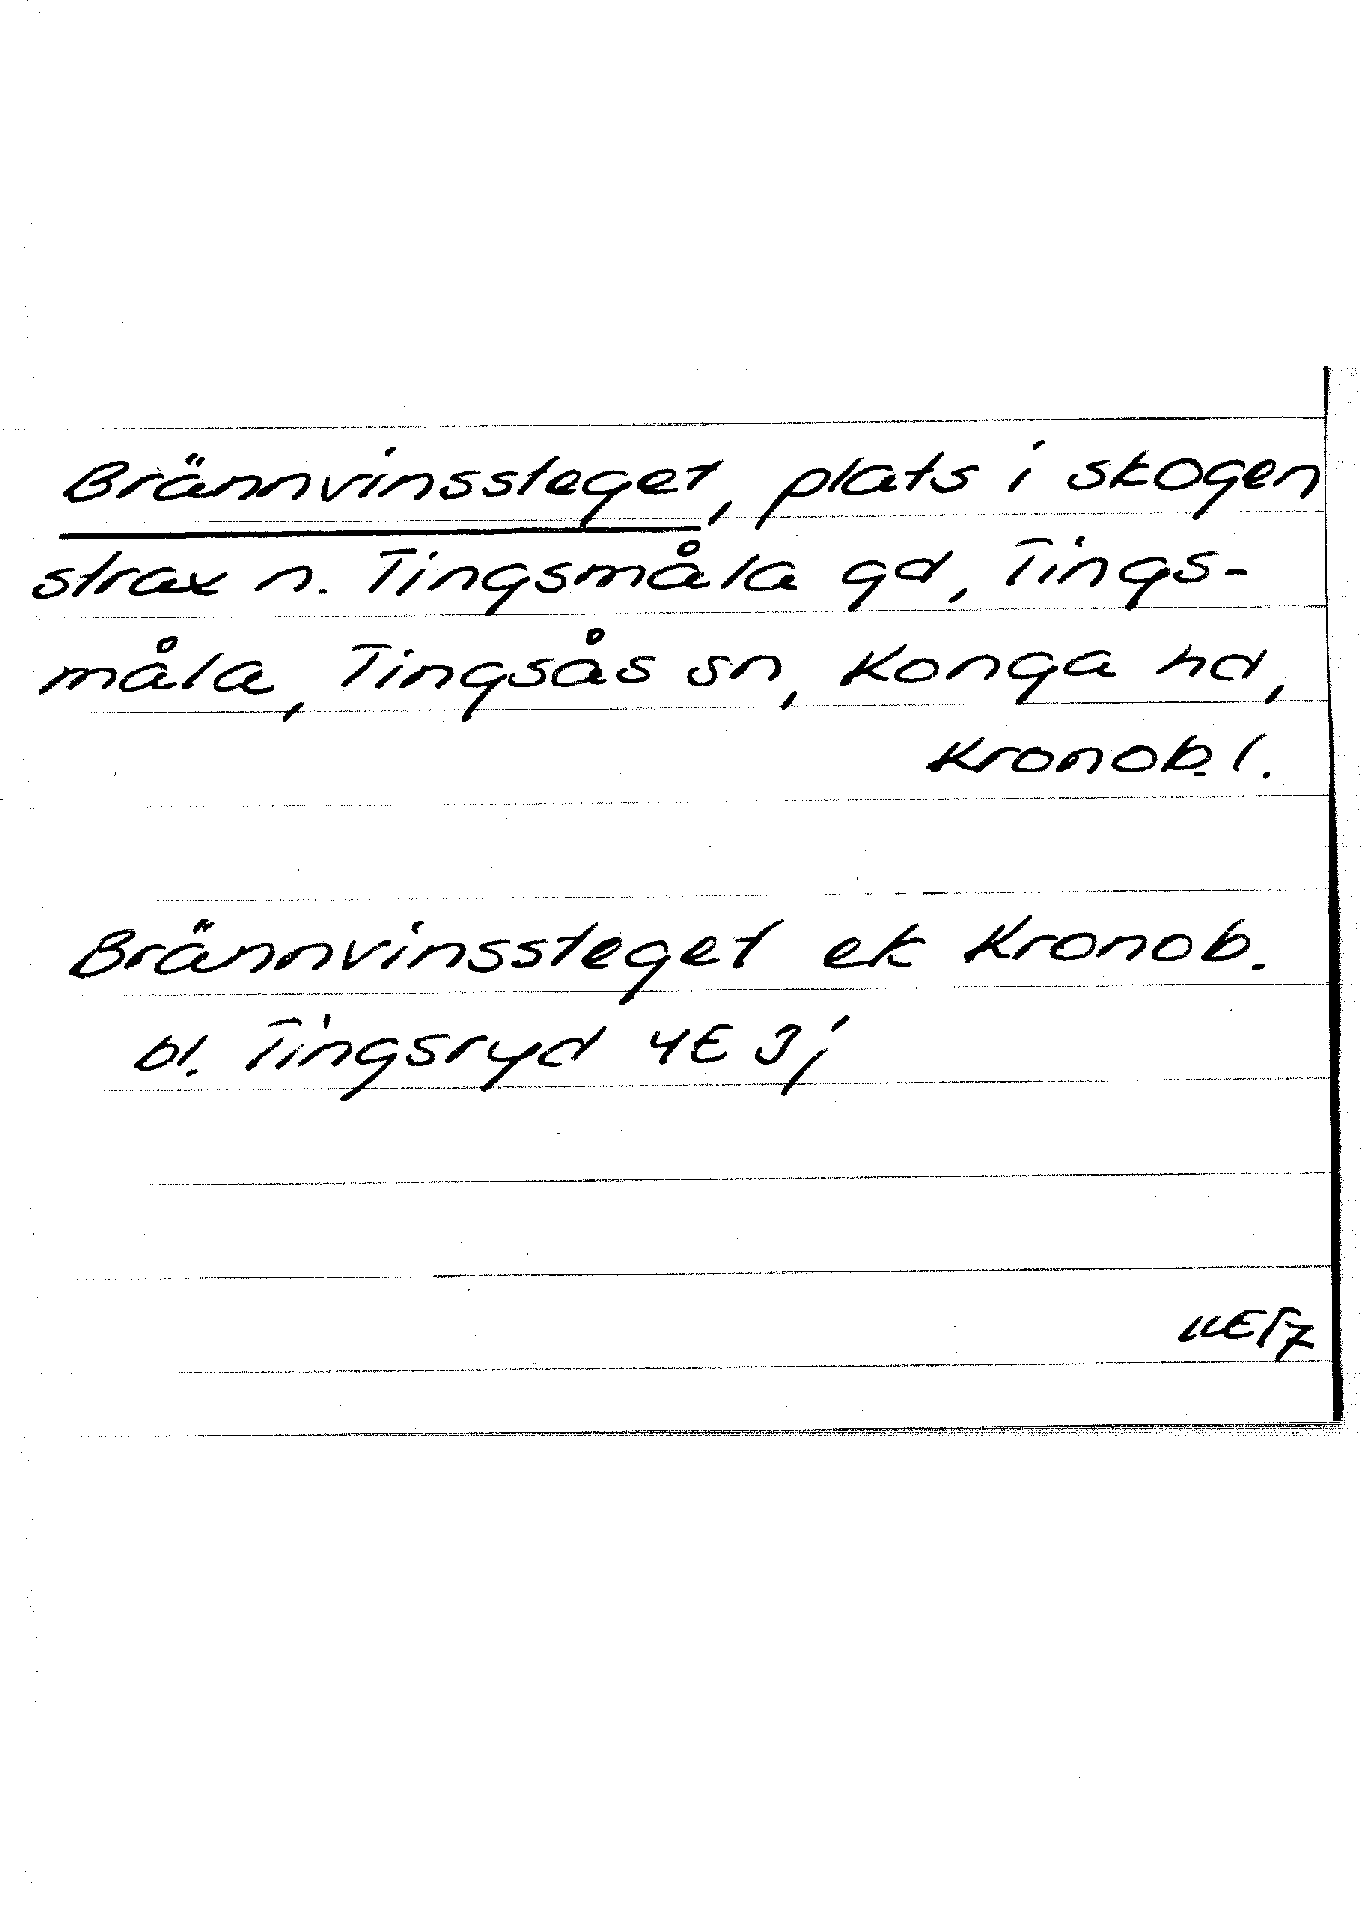 Brännvinssteget, plats i skogen
strax n. Tingsmåla gd, Tings-
måla, Tingsås sn, Konga hd,
Kronob. l.
Brännvinssteget ek Kronob.
bl. Tingsryd 4E 3j